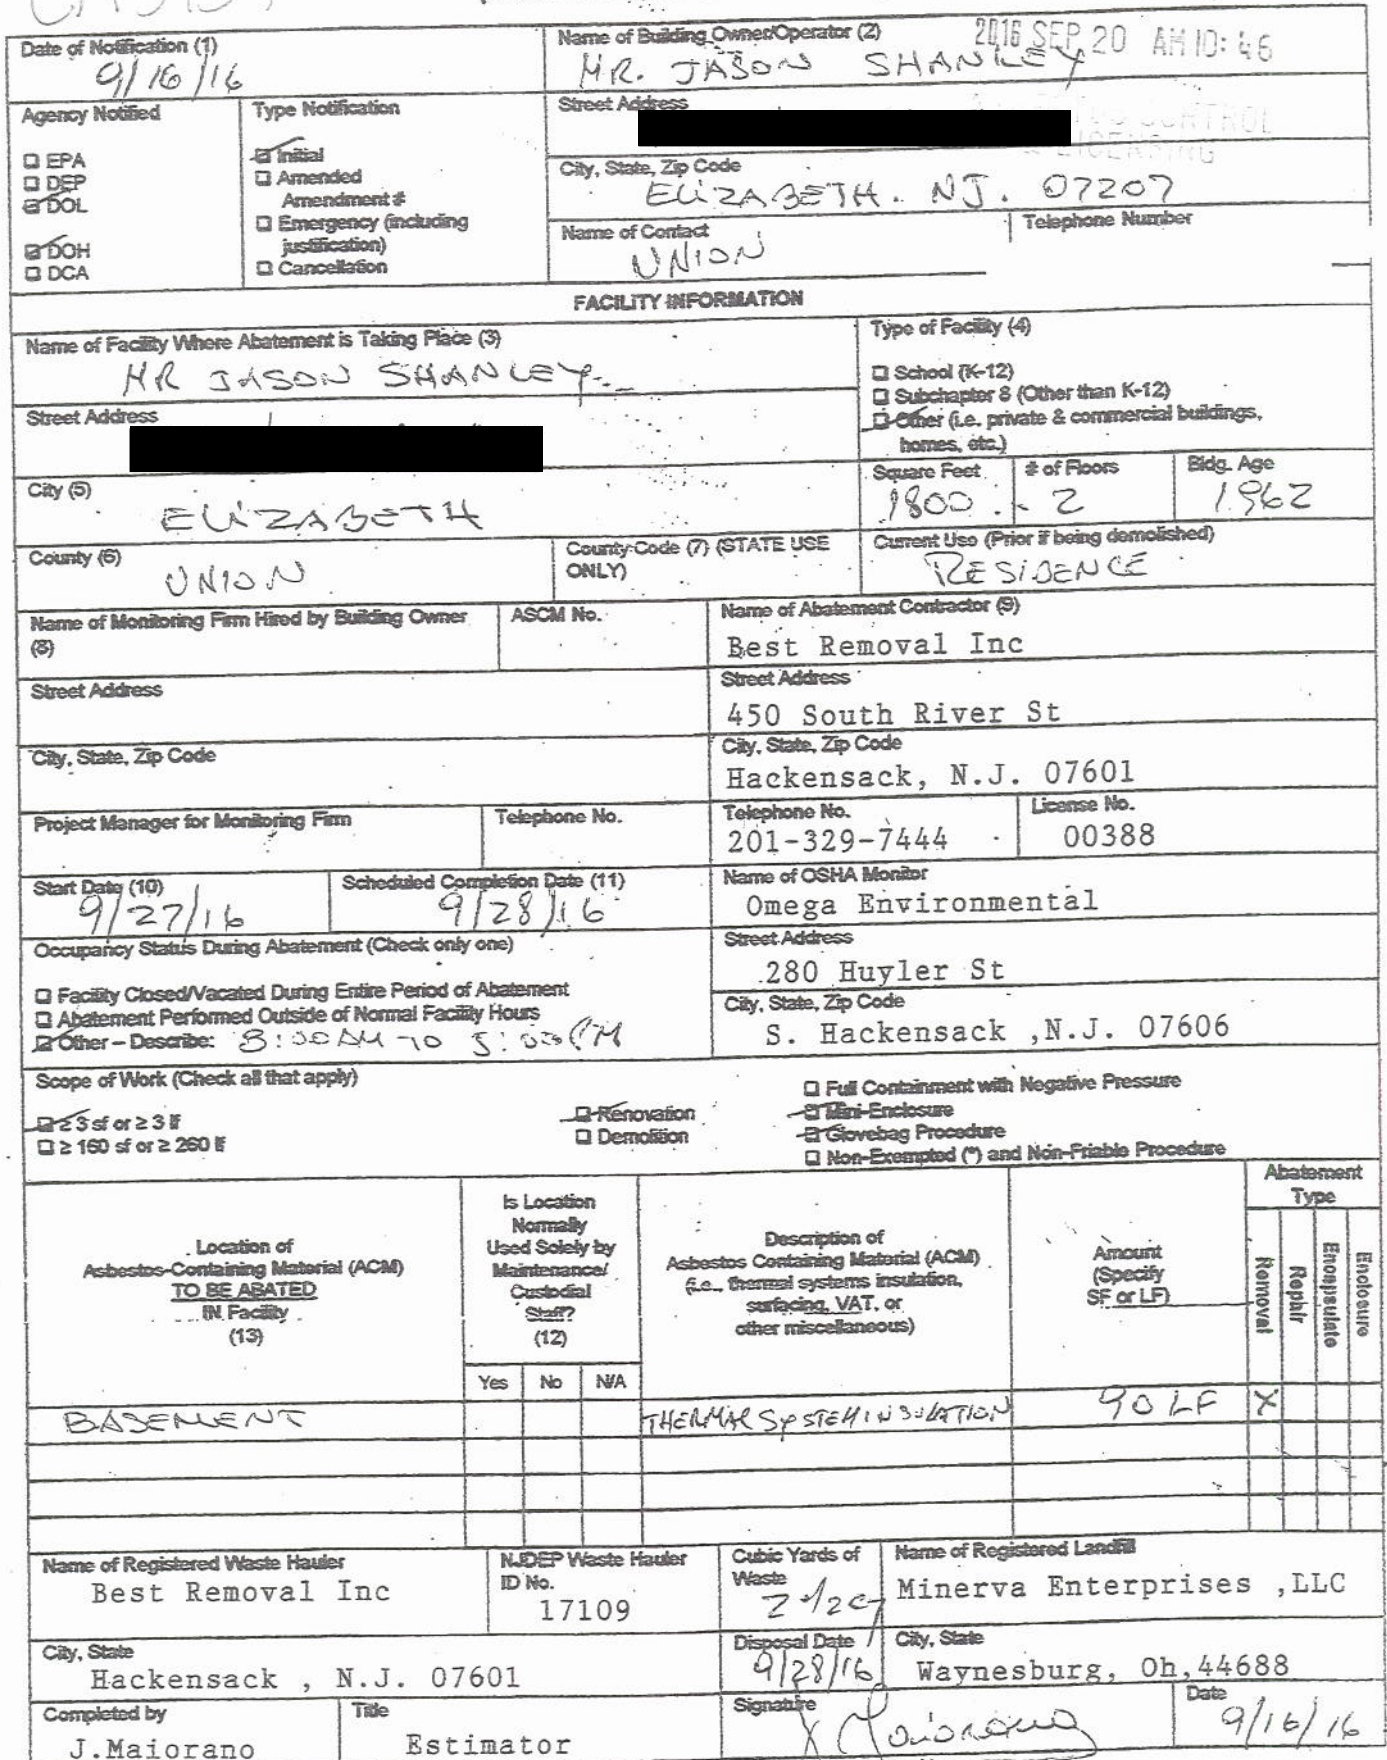 Date of Notification (1)
9/16/16
Name of Building Owner/Operator (2)
MR. JASON SHANLEY
2016 SEP 20 AM 10: 46
Agency Notified
EPA
DEP
DOL
DOH
DCA
Type Notification
Initial
Amended
Amendment #
Emergency (including
justification)
Cancellation
Street Address
CONTROL
LICENSING
City, State, Zip Code
ELIZABETH. NJ. 07207
Name of Contact
UNION
Telephone Number
FACILITY INFORMATION
Name of Facility Where Abatement is Taking Place (3)
MR JASON SHANLEY
Type of Facility (4)
School (K-12)
Subchapter 8 (Other than K-12)
Other (i.e. private & commercial buildings,
homes, etc.)
Street Address
Square Feet
1800
# of Floors
2
Bldg. Age
1962
City (5)
ELIZABETH
County (6)
UNION
County Code (7) (STATE USE
ONLY)
Current Use (Prior if being demolished)
RESIDENCE
Name of Monitoring Firm Hired by Building Owner
(8)
ASCM No.
Name of Abatement Contractor (9)
Best Removal Inc
Street Address
Street Address
450 South River St
City, State, Zip Code
City, State, Zip Code
Hackensack, N.J. 07601
Project Manager for Monitoring Firm
Telephone No.
Telephone No.
201-329-7444
License No.
00388
Start Date (10)
9/27/16
Scheduled Completion Date (11)
9/28/16
Name of OSHA Monitor
Omega Environmental
Occupancy Status During Abatement (Check only one)
Facility Closed/Vacated During Entire Period of Abatement
Abatement Performed Outside of Normal Facility Hours
Other – Describe: 8:00AM TO 5:00PM
Street Address
280 Huyler St
City, State, Zip Code
S. Hackensack ,N.J. 07606
Scope of Work (Check all that apply)
≥ 3 sf or ≥ 3 lf
≥ 160 sf or ≥ 260 lf
Renovation
Demolition
Full Containment with Negative Pressure
Mini-Enclosure
Glovebag Procedure
Non-Exempted (*) and Non-Friable Procedure
Location of
Asbestos-Containing Material (ACM)
TO BE ABATED
IN Facility
(13)
Is Location
Normally
Used Solely by
Maintenance/
Custodial
Staff?
(12)
Yes No N/A
Description of
Asbestos Containing Material (ACM)
(i.e., thermal systems insulation,
surfacing, VAT, or
other miscellaneous)
Amount
(Specify
SF or LF)
Abatement
Type
Removal
Repair
Encapsulate
Enclosure
BASEMENT THERMAL SYSTEM INSULATION 90 LF X
Name of Registered Waste Hauler
Best Removal Inc
NJDEP Waste Hauler
ID No.
17109
Cubic Yards of
Waste
Name of Registered Landfill
Minerva Enterprises ,LLC
City, State
Hackensack , N.J. 07601
Disposal Date
9/28/16
City, State
Waynesburg, Oh,44688
Completed by
J.Maiorano
Title
Estimator
Signature
X Maiorano
Date
9/16/16